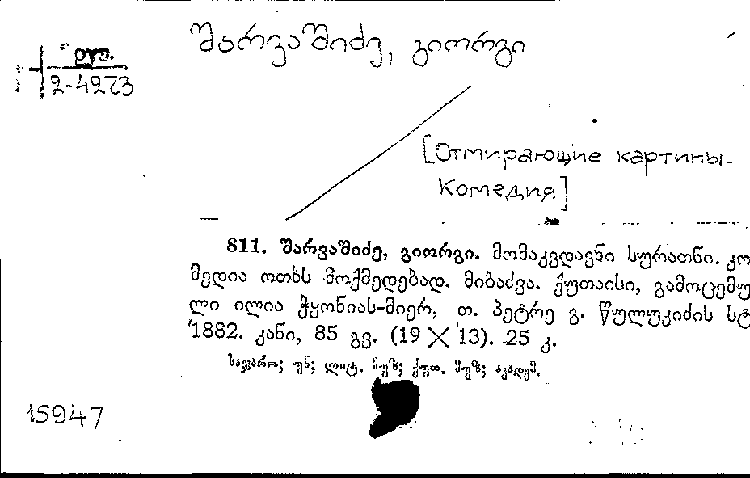 შარვაშიძე, გიორგი
2-4273
[Отмирающие картины.
Комедия]
811. შარვაშიძე, გიორგი. მომაკვდავნი სურათნი. კო
მედია ოთხს მოქმედებად. მიბაძვა. ქუთაისი, გამოცემუ
ლი ილია ჭყონიას-მიერ, თ. პეტრე გ. წულუკიძის სტ
1882. კანი, 85 გვ. (19 X 13). 25 კ.
უნ; ლიტ. მუზ; ქუთ. მუზ; აკადემ.
15947